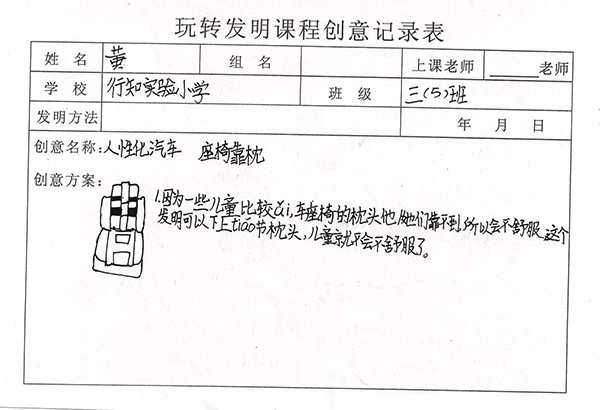 玩转发明课程创意记录表
姓 名 黄 组 名 上课老师 ______老师
学 校 行知实验小学 班 级 三(5)班
发明方法 年 月 日
创意名称:人性化汽车 座椅靠枕
创意方案:
1.因为一些儿童比较ǎi,车座椅的枕头他/她们靠不到,所以会不舒服。这个
发明可以下上tiáo节枕头,儿童就不会不舒服了。